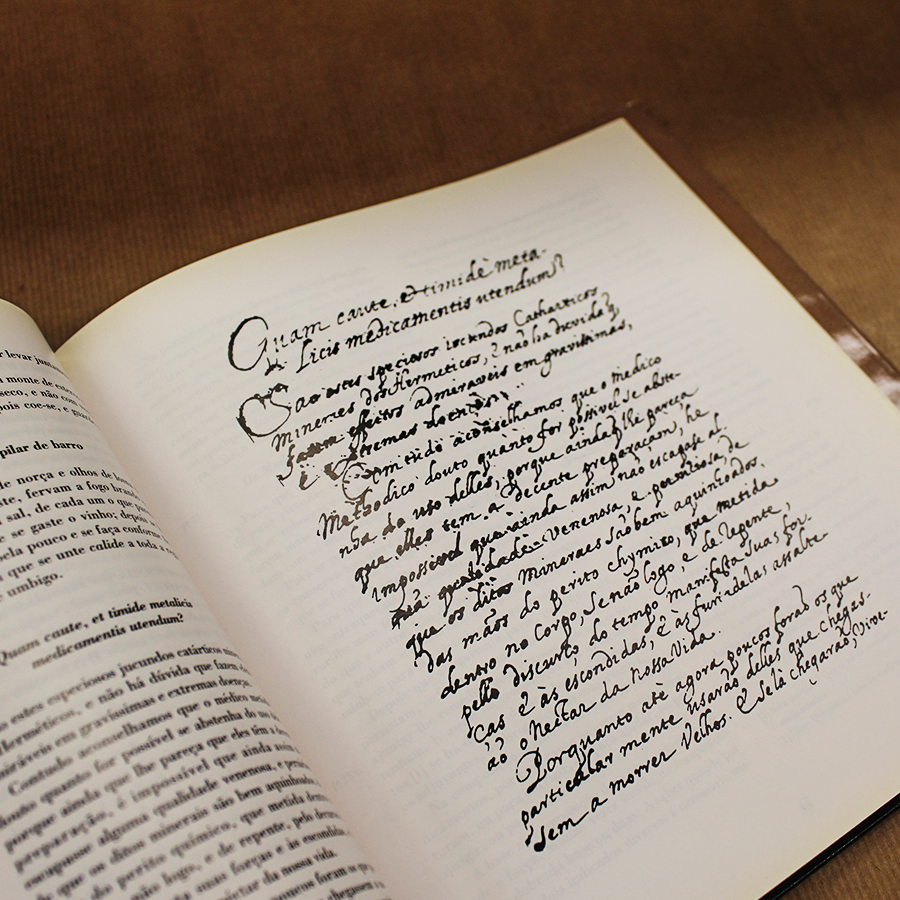 r levar jun
monte de
seco, e não con
pois coe-se, e gua
pilar de barro
de norça e olhos de
ste, fervam a fogo brand
sal, de cada um o que p
se gaste o vinho; depois
ela pouco e se faça conforme
que se unte calide a toda a
umbigo.
Quam caute, et timide metalicis
medicamentis utendum?
estes especiosos jucundos catárticos
Herméticos, e não há dúvida que fazem
miráveis em gravíssimas e extremas doenças.
Contudo aconselhamos que o médico
douto quanto for possível se abstenha do uso
porque ainda que lhe pareça que eles têm a
preparação, é impossível que ainda assim
escapasse alguma qualidade venenosa, e
que os ditos minerais são bem aquinhoados
do perito químico, que metida dentro
não logo, e de repente, pelo
suas forças e às escondidas
nectar da nossa vida.
Quam caute, et timidè meta-
licis medicamentis utendum?
Sao estes speciosos iucundos Catharticos
Mineraes dos Hermeticos, e não ha duvida q
fazem effeitos admeraveis em gravissimas,
e extremas doenças.
Com tudo aconselhamos que o Medico
Methodico douto quanto for possivel se abste-
nha do uso delles, porque ainda q lhe pareça
que elles tem a decente preparaçam, he
impossivel que ainda assim não escapase al-
guá qualidade Venenosa, e perniciosa, de
que os ditos Mineraes são bem aquinhoados.
das mãos do perito chymico, que metida
dentro no Corpo, se não logo, e de repente,
pello discurso do tempo manifesta suas for-
ças e às escondidas, e às furtadelas assalte
ao o Nectar da nossa Vida.
Porquanto atè agora poucos forão os que
particular mente usarão delles que cheges-
sem a morrer Velhos. E se là chegarão, vive-